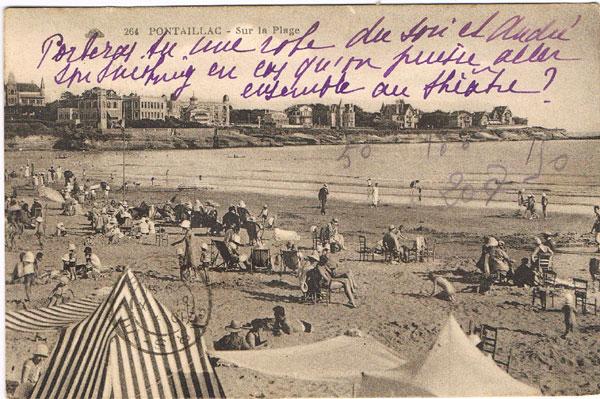 264 PONTAILLAC - Sur la Plage
Porteras tu une robe du soir et André
son smoking en cas qu'on puisse aller
ensemble au théâtre?
50 100 150